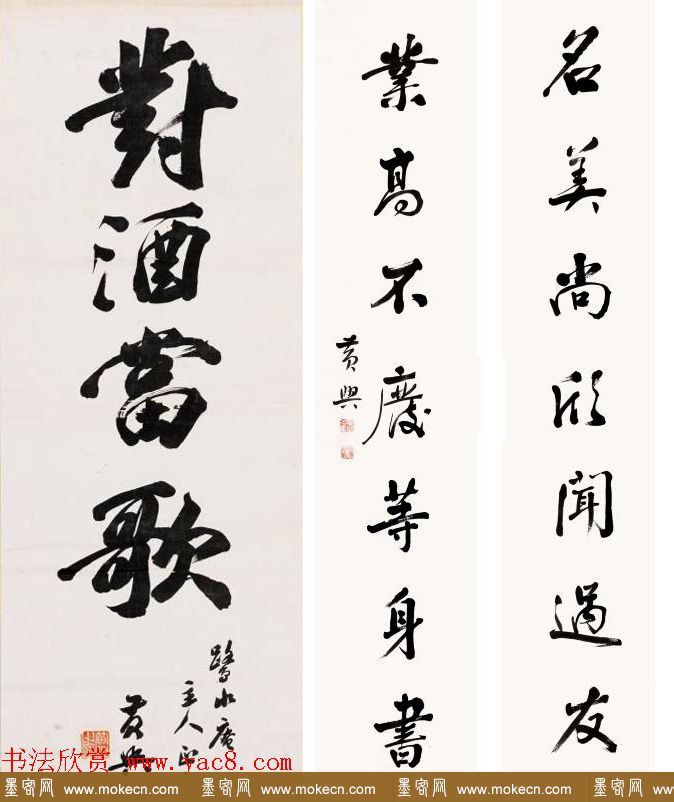 對酒當歌
鷺水庵
主人正
黃興
名美尚欣聞過友
業高不廢等身書
黃興
书法欣赏 www.yac8.com
墨客网 www.mokecn.com 墨客网 www.mokecn.com 墨客网 www.mokecn.com